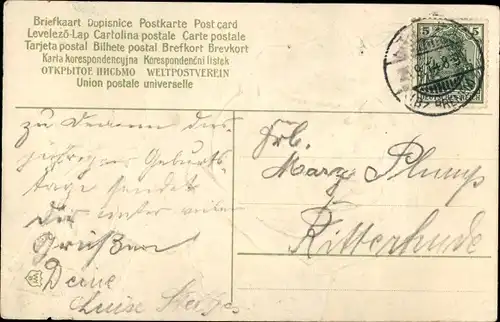 Briefkaart Dopisnice Postkarte Post card
Levelező-Lap Cartolina postale Carte postale
Tarjeta postal Bilhete postal Brefkort Brevkort
Karta korespondencyjna Korespondenční listek
ОТКРЫТОЕ ПИСЬМО WELTPOSTVEREIN
Union postale universelle
5 5
zu Deinem
Geburts
tage sendet
Dir unter vielen
Grüßen
Deine
Luise
Frl.
Plump
Ritterhude